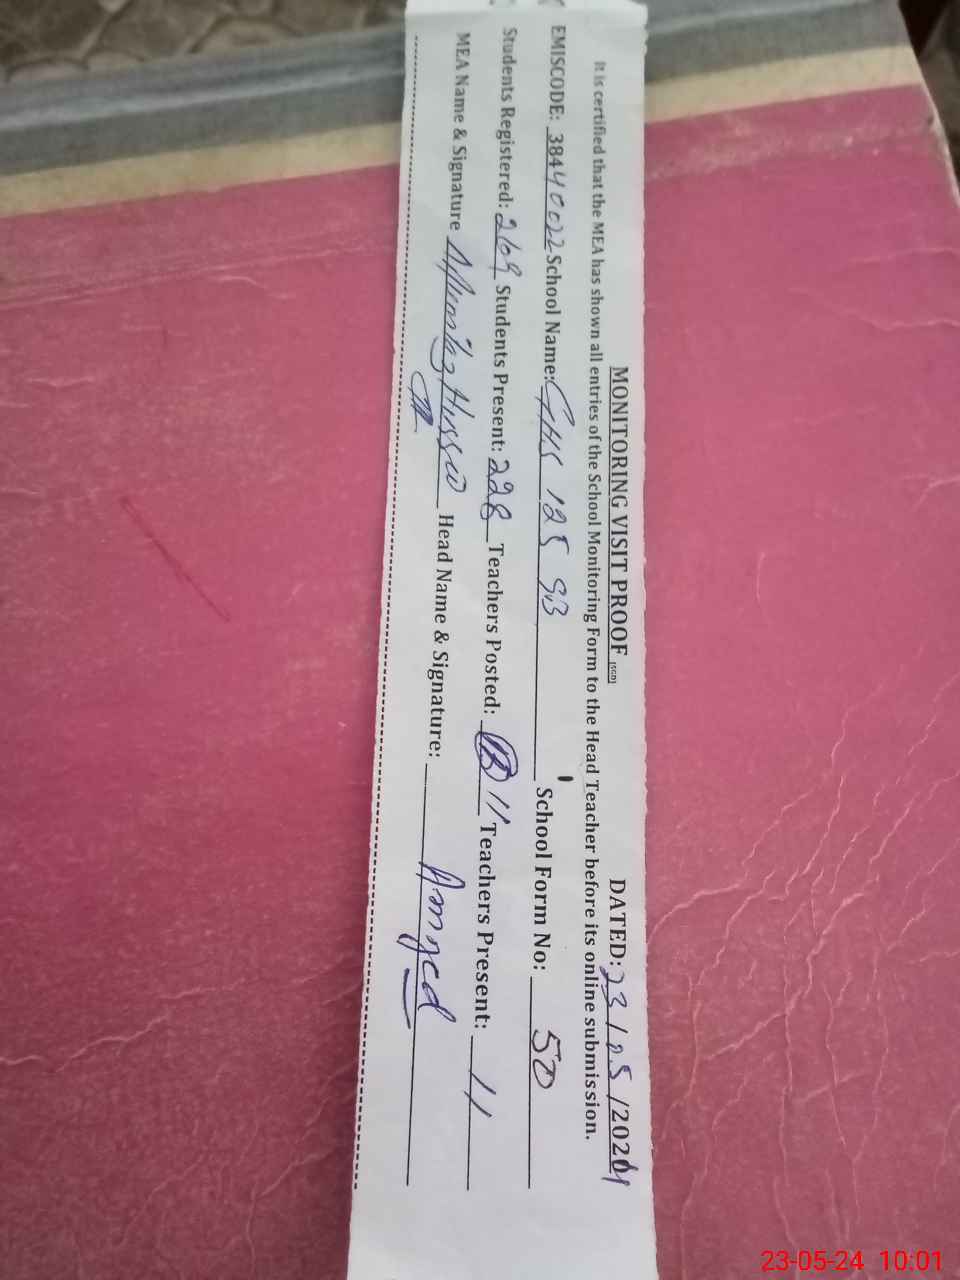 MONITORING VISIT PROOF [SGD] DATED: 23/05/2024
It is certified that the MEA has shown all entries of the School Monitoring Form to the Head Teacher before its online submission.
EMISCODE: 38440022 School Name: GHS 125 SB School Form No: 50
Students Registered: 269 Students Present: 228 Teachers Posted: 11 Teachers Present: 11
MEA Name & Signature Head Name & Signature: Amjed
23-05-24 10:01